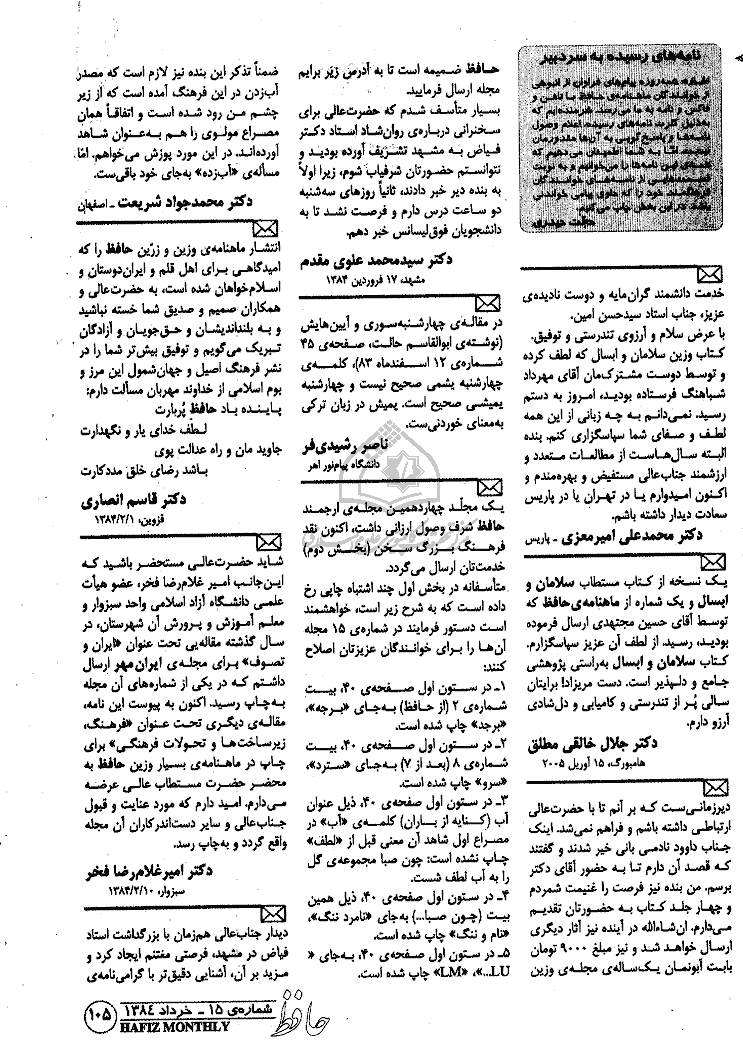 نامه‌های رسیده به سردبیر
خدمت دانشمند گران‌مایه و دوست نادیده‌ی
عزیز، جناب استاد سیدحسن امین.
با عرض سلام و آرزوی تندرستی و توفیق.
کتاب وزین سلامان و ابسال که لطف کرده
و توسط دوست مشترک‌مان آقای مهرداد
شباهنگ فرستاده بودید، امروز به دستم
رسید. نمی‌دانم به چه زبانی از این همه
لطف و صفای شما سپاسگزاری کنم. بنده
البته سال‌هاست از مطالعات متعدد و
ارزشمند جناب‌عالی مستفیض و بهره‌مندم و
اکنون امیدوارم یا در تهران یا در پاریس
سعادت دیدار داشته باشم.
دکتر محمدعلی امیرمعزی ـ پاریس
یک نسخه از کتاب مستطاب سلامان و
ابسال و یک شماره از ماهنامه‌ی حافظ که
توسط آقای حسین مجتهدی ارسال فرموده
بودید، رسید. از لطف آن عزیز سپاسگزارم.
کتاب سلامان و ابسال به‌راستی پژوهشی
جامع و دلپذیر است. دست مریزاد! برایتان
سالی پُر از تندرستی و کامیابی و دل‌شادی
آرزو دارم.
دکتر جلال خالقی مطلق
هامبورگ، ۱۵ آوریل ۲۰۰۵
دیرزمانی‌ست که بر آنم تا با حضرت‌عالی
ارتباطی داشته باشم و فراهم نمی‌شد. اینک
جناب داوود نادمی بانی خیر شدند و گفتند
که قصد آن دارم تا به حضور آقای دکتر
برسم. من بنده نیز فرصت را غنیمت شمردم
و چهار جلد کتاب به حضورتان تقدیم
می‌دارم. ان‌شاءالله در آینده نیز آثار دیگری
ارسال خواهد شد و نیز مبلغ ۹۰۰۰ تومان
بابت آبونمان یک‌ساله‌ی مجله‌ی وزین
حافظ ضمیمه است تا به آدرس زیر برایم
مجله ارسال فرمایید.
بسیار متأسف شدم که حضرت‌عالی برای
سخنرانی درباره‌ی روان‌شاد استاد دکتر
فیاض به مشهد تشریف آورده بودید و
نتوانستم حضورتان شرفیاب شوم، زیرا اولاً
به بنده دیر خبر دادند، ثانیاً روزهای سه‌شنبه
دو ساعت درس دارم و فرصت نشد تا به
دانشجویان فوق‌لیسانس خبر دهم.
دکتر سیدمحمد علوی مقدم
مشهد، ۱۷ فروردین ۱۳۸۴
در مقاله‌ی چهارشنبه‌سوری و آیین‌هایش
(نوشته‌ی ابوالقاسم حالت، صفحه‌ی ۴۵
شماره‌ی ۱۲ اسفندماه ۸۳)، کلمه‌ی
چهارشنبه یشمی صحیح نیست و چهارشنبه
یمیشی صحیح است. یمیش در زبان ترکی
به‌معنای خوردنی‌ست.
ناصر رشیدی‌فر
دانشگاه پیام‌نور اهر
یک مجلد چهاردهمین مجله‌ی ارجمند
حافظ شرف وصول ارزانی داشت، اکنون نقد
فرهنگ بزرگ سخن (بخش دوم)
خدمت‌تان ارسال می‌گردد.
متأسفانه در بخش اول چند اشتباه چاپی رخ
داده است که به شرح زیر است، خواهشمند
است دستور فرمایند در شماره‌ی ۱۵ مجله
آن‌ها را برای خوانندگان عزیزتان اصلاح
کنند:
۱ـ در ستون اول صفحه‌ی ۴۰، بیت
شماره‌ی ۲ (از حافظ) به‌جای «برجه»،
«برجد» چاپ شده است.
۲ـ در ستون اول صفحه‌ی ۴۰، بیت
شماره‌ی ۸ (بعد از ۷) به‌جای «سترد»،
«سرو» چاپ شده است.
۳ـ در ستون اول صفحه‌ی ۴۰، ذیل عنوان
آب (کنایه از باران) کلمه‌ی «آب» در
مصراع اول شاهد آن معنی قبل از «لطف»
چاپ نشده است: چون صبا مجموعه‌ی گل
را به آب لطف شست.
۴ـ در ستون اول صفحه‌ی ۴۰، ذیل همین
بیت (چون صبا...) به‌جای «نامرد ننگ»،
«نام و ننگ» چاپ شده است.
۵ـ در ستون اول صفحه‌ی ۴۰، به‌جای «
LU...»، «LM» چاپ شده است.
ضمناً تذکر این بنده نیز لازم است که مصدر
آب‌زدن در این فرهنگ آمده است که از زیر
چشم من رود شده است و اتفاقاً همان
مصراع مولوی را هم به‌عنوان شاهد
آورده‌اند. در این مورد پوزش می‌خواهم. امّا
مسأله‌ی «آب‌زده» به‌جای خود باقی‌ست.
دکتر محمدجواد شریعت ـ اصفهان
انتشار ماهنامه‌ی وزین و زرّین حافظ را که
امیدگاهی برای اهل قلم و ایران‌دوستان و
اسلام‌خواهان شده است، به حضرت‌عالی و
همکاران صمیم و صدیق شما خسته نباشید
و به بلنداندیشان و حق‌جویان و آزادگان
تبریک می‌گویم و توفیق بیش‌تر شما را در
نشر فرهنگ اصیل و جهان‌شمول این مرز و
بوم اسلامی از خداوند مهربان مسألت دارم:
پاینده باد حافظ پُربارت
لطف خدای یار و نگهدارت
جاوید مان و راه عدالت پوی
باشد رضای خلق مددکارت
دکتر قاسم انصاری
قزوین، ۱۳۸۴/۲/۱
شاید حضرت‌عالی مستحضر باشید که
این‌جانب امیر غلام‌رضا فخر، عضو هیأت
علمی دانشگاه آزاد اسلامی واحد سبزوار و
معلم آموزش و پرورش آن شهرستان، در
سال گذشته مقاله‌یی تحت عنوان «ایران و
تصوف» برای مجله‌ی ایران‌مهر ارسال
داشتم که در یکی از شماره‌های آن مجله
به‌چاپ رسید. اکنون به پیوست این نامه،
مقاله‌ی دیگری تحت عنوان «فرهنگ،
زیرساخت‌ها و تحولات فرهنگی» برای
چاپ در ماهنامه‌ی بسیار وزین حافظ به
محضر حضرت مستطاب عالی عرضه
می‌دارم. امید دارم که مورد عنایت و قبول
جناب‌عالی و سایر دست‌اندرکاران آن مجله
واقع گردد و به‌چاپ رسد.
دکتر امیرغلام‌رضا فخر
سبزوار، ۱۳۸۴/۲/۱۰
دیدار جناب‌عالی هم‌زمان با بزرگداشت استاد
فیاض در مشهد، فرصتی مغتنم ایجاد کرد و
مزید بر آن، آشنایی دقیق‌تر با گرامی‌نامه‌ی
حافظ
شماره‌ی ۱۵ ـ خرداد ۱۳۸۴
HAFIZ MONTHLY
۱۰۵